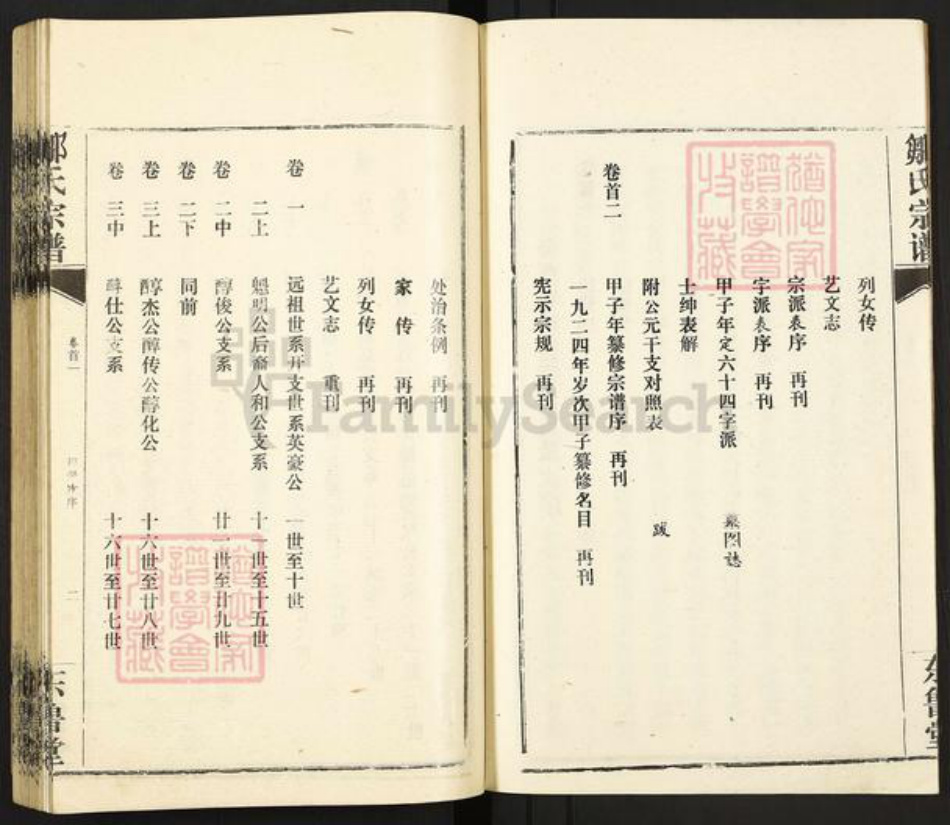 鄒氏宗谱
列女传
艺文志
宗派表序 再刊
字派表序 再刊
甲子年定六十四字派 墓图志
士绅表解
附公元干支对照表 跋
卷首二 甲子年纂修宗谱序 再刊
一九二四年岁次甲子纂修名目 再刊
宪示宗规 再刊
东鲁堂
处治条例 再刊
家传 再刊
列女传 再刊
艺文志 重刊
卷一 远祖世系开支世系英豪公 一世至十世
二上 魁明公后裔人和公支系 十一世至十五世
卷二中 醇俊公支系 廿一世至廿九世
卷二下 同前
卷三上 醇杰公醇传公醇化公 十六世至廿八世
卷三中 醇仕公支系 十六世至廿七世
邹氏宗谱
卷首一
二
东鲁堂
猶他家譜學會收藏
猶他家譜學會收藏
FamilySearch